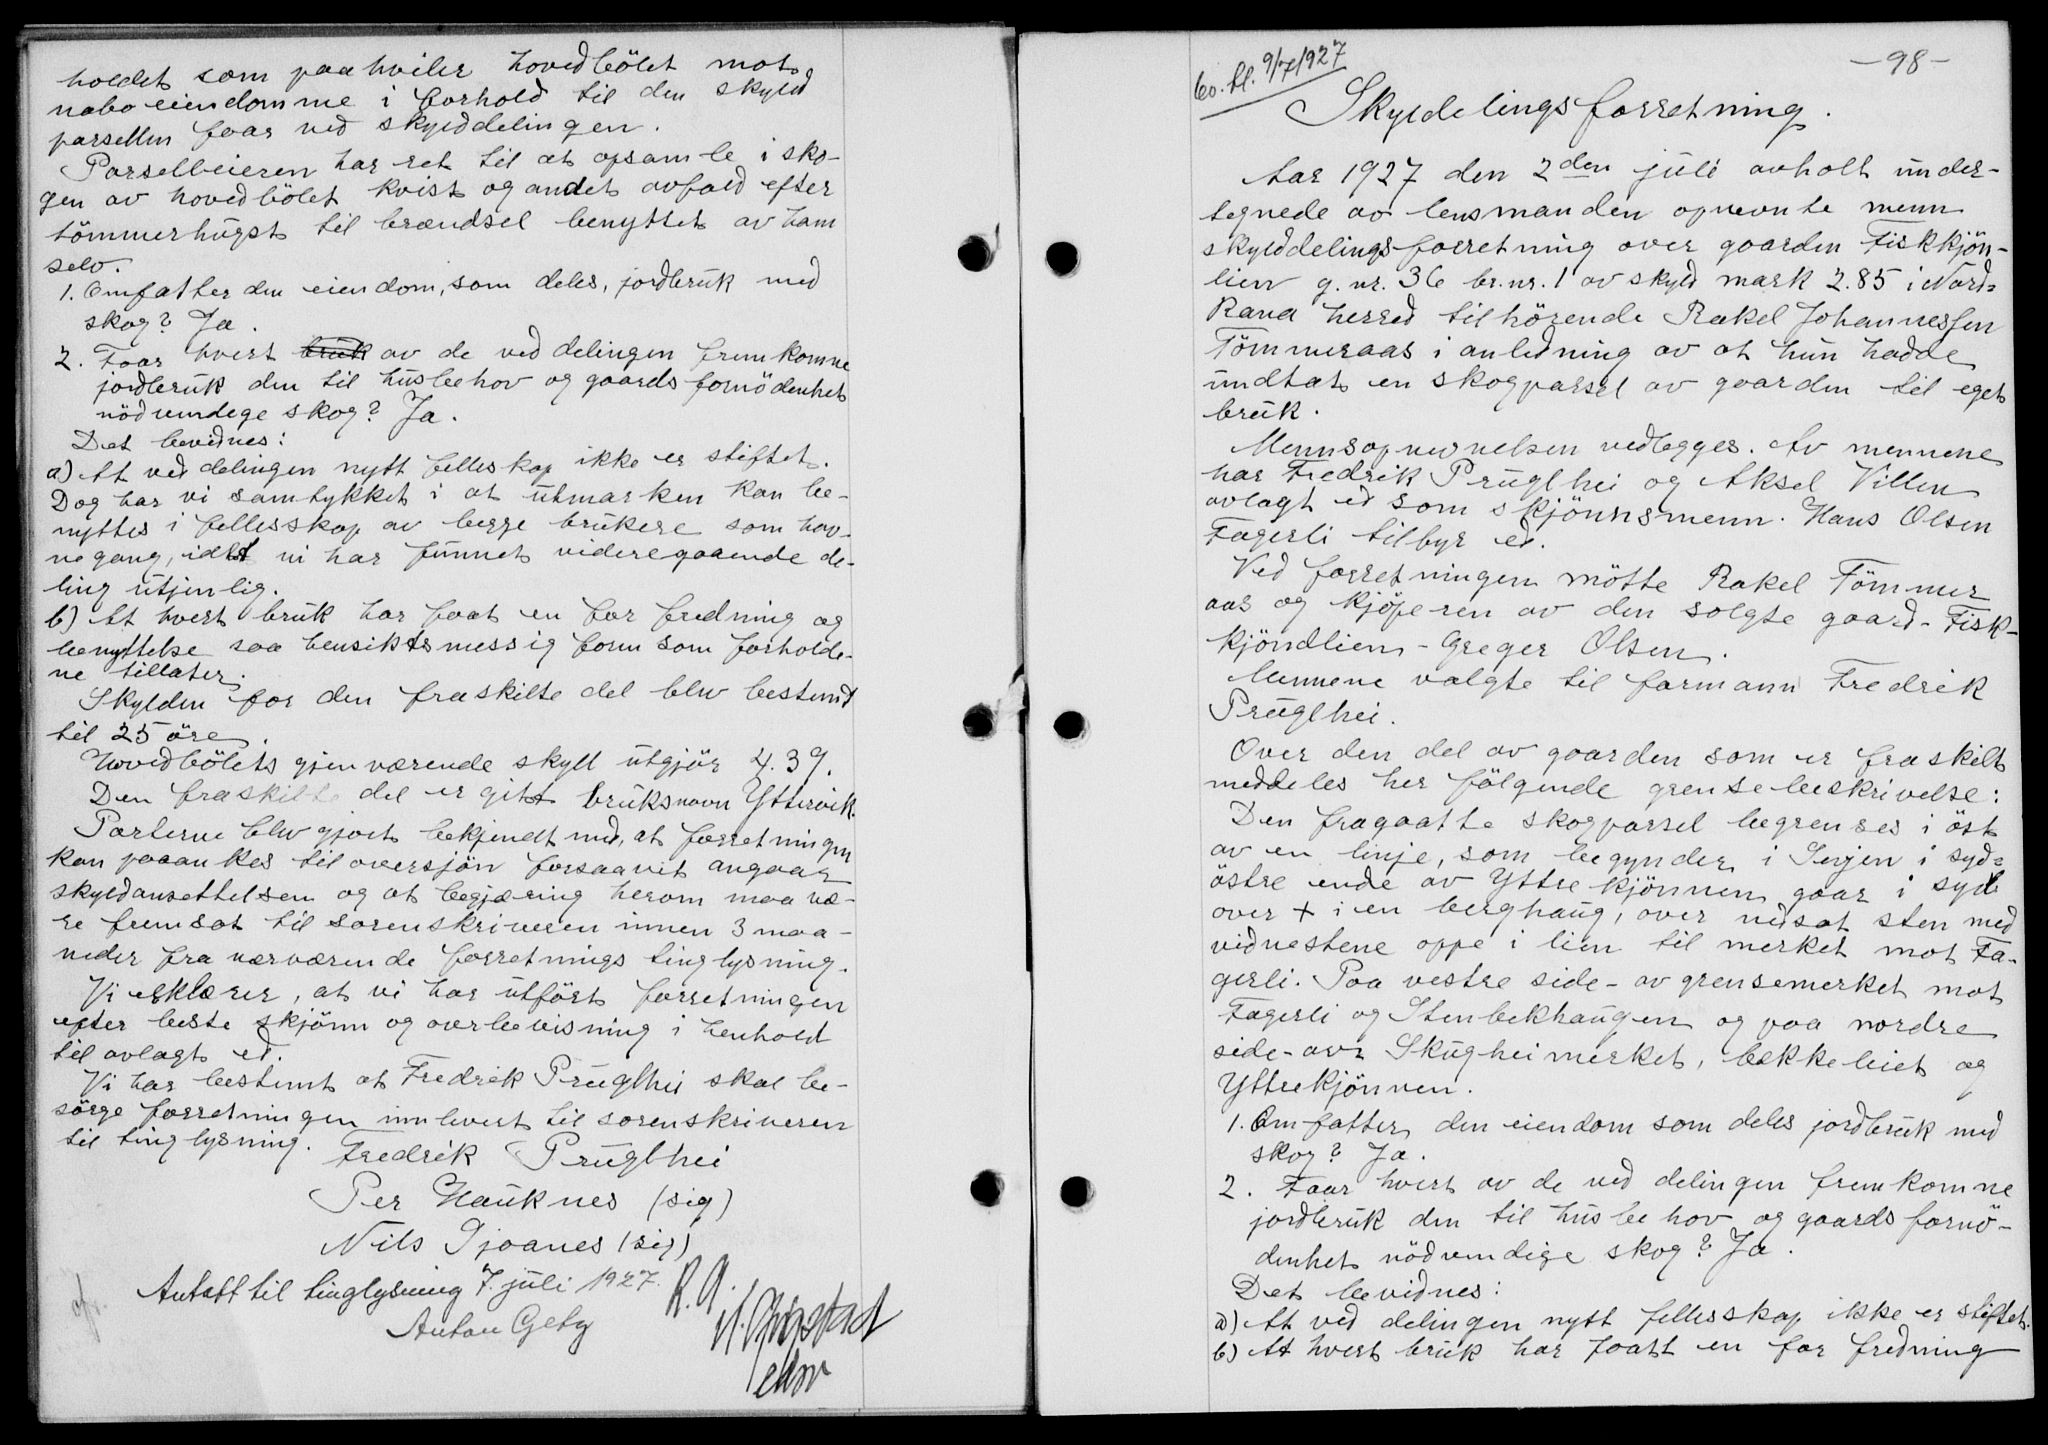 holdet som paahviler hovedbölet mot
naboeiendomme i forhold til den skyld
parsellen faar ved skylddelingen.
Parselleieren har ret til at opsamle i sko-
gen av hovedbölet kvist og andet avfald efter
tömmerhugst til brændsel benyttet av ham
selv.
1. Omfatter den eiendom, som deles, jordbruk med
skog? Ja.
2. Faar hvert bruk av de ved delingen fremkomne
jordbruk den til husbehov og gaards fornödenhet
nödvendege skog? Ja.
Det bevidnes:
a) At ved delingen nytt felleskap ikke er stiftet.
Dog har vi samtykket i at utmarken kan be-
nyttes i fellesskap av begge brukere som hav-
negang, idet vi har funnet videregaaende de-
ling utjenlig.
b) At hvert bruk har faat en for fredning og
benyttelse saa hensiktsmessig form som forholde-
ne tillater.
Skylden for den fraskilte del blev bestemt
til 25 öre.
Hovedbölets gjenværende skyll utgjör 4.39.
Den fraskilte del er gitt bruksnavn Yttervik.
Parterne blev gjort bekjendt med, at forretningen
kan paaankes til overskjön forsaavit angaar
skyldansettelsen og at begjæring herom maa væ-
re fremsat til sorenskriveren innen 3 maa-
neder fra nærværende forretnings tinglysning.
Vi erklærer, at vi har utfört forretningen
efter beste skjönn og overbevisning i henhold
til avlagt ed.
Vi har bestemt at Fredrik Prüglhei skal be-
sörge forretningen innlevert til sorenskriveren
til tinglysning. Fredrik Prüglhei
Per Hauknes (sig)
Nils Gjoanes (sig)
Antatt til tinglysning 7. juli 1927.
Anton Geby
R. A.
-98-
Co. bl. 9/7 1927
Skyldelingsforretning.
Aar 1927 den 2den juli avholt under-
tegnede av lensmanden opnevnte menn
skylddelingsforretning over gaarden Fiskkjön-
lien g. nr. 36 br. nr. 1 av skyld mark 2.85 i Nord-
Rana herred tilhörende Rakel Johannessen
Tömmeraas i anledning av at hun hadde
undtat en skogparsel av gaarden til eget
bruk.
Mennsopnevnelsen vedlegges. Av mennene
har Fredrik Prüglhei og Aksel Villen
avlagt ed som skjönnsmenn. Hans Olsen
Fagerli tilbyr ed.
Ved forretningen mötte Rakel Tömmer
aas og kjöperen av den solgte gaard- Fisk-
kjöndlien - Greger Olsen.
Mennene valgte til formann Fredrik
Prüglhei.
Over den del av gaarden som er fraskilt
meddeles her fölgende grensebeskrivelse:
Den fragaatte skogparsel begrenses i öst
av en linje, som begynder i Sevjen i syd-
östre ende av Yttre kjönnen gaar i syd
over + i en berghaug, over nedsat sten med
vidnestene oppe i lien til merket mot Fa-
gerli. Paa vestre side - av grensemerket mot
Fagerli og Stenbekhaugen og paa nordre
side - av Skugheimerket, bekkeleiet og
Yttrekjönnen.
1. Omfatter den eiendom som deles jordbruk med
skog? Ja.
2. Faar hvert av de ved delingen fremkomne
jordbruk den til husbehov og gaards fornö-
denhet nödvendige skog? Ja.
Det bevidnes:
a) At ved delingen nytt fellesskap ikke er stiftet.
b) At hvert bruk har faatt en for fredning